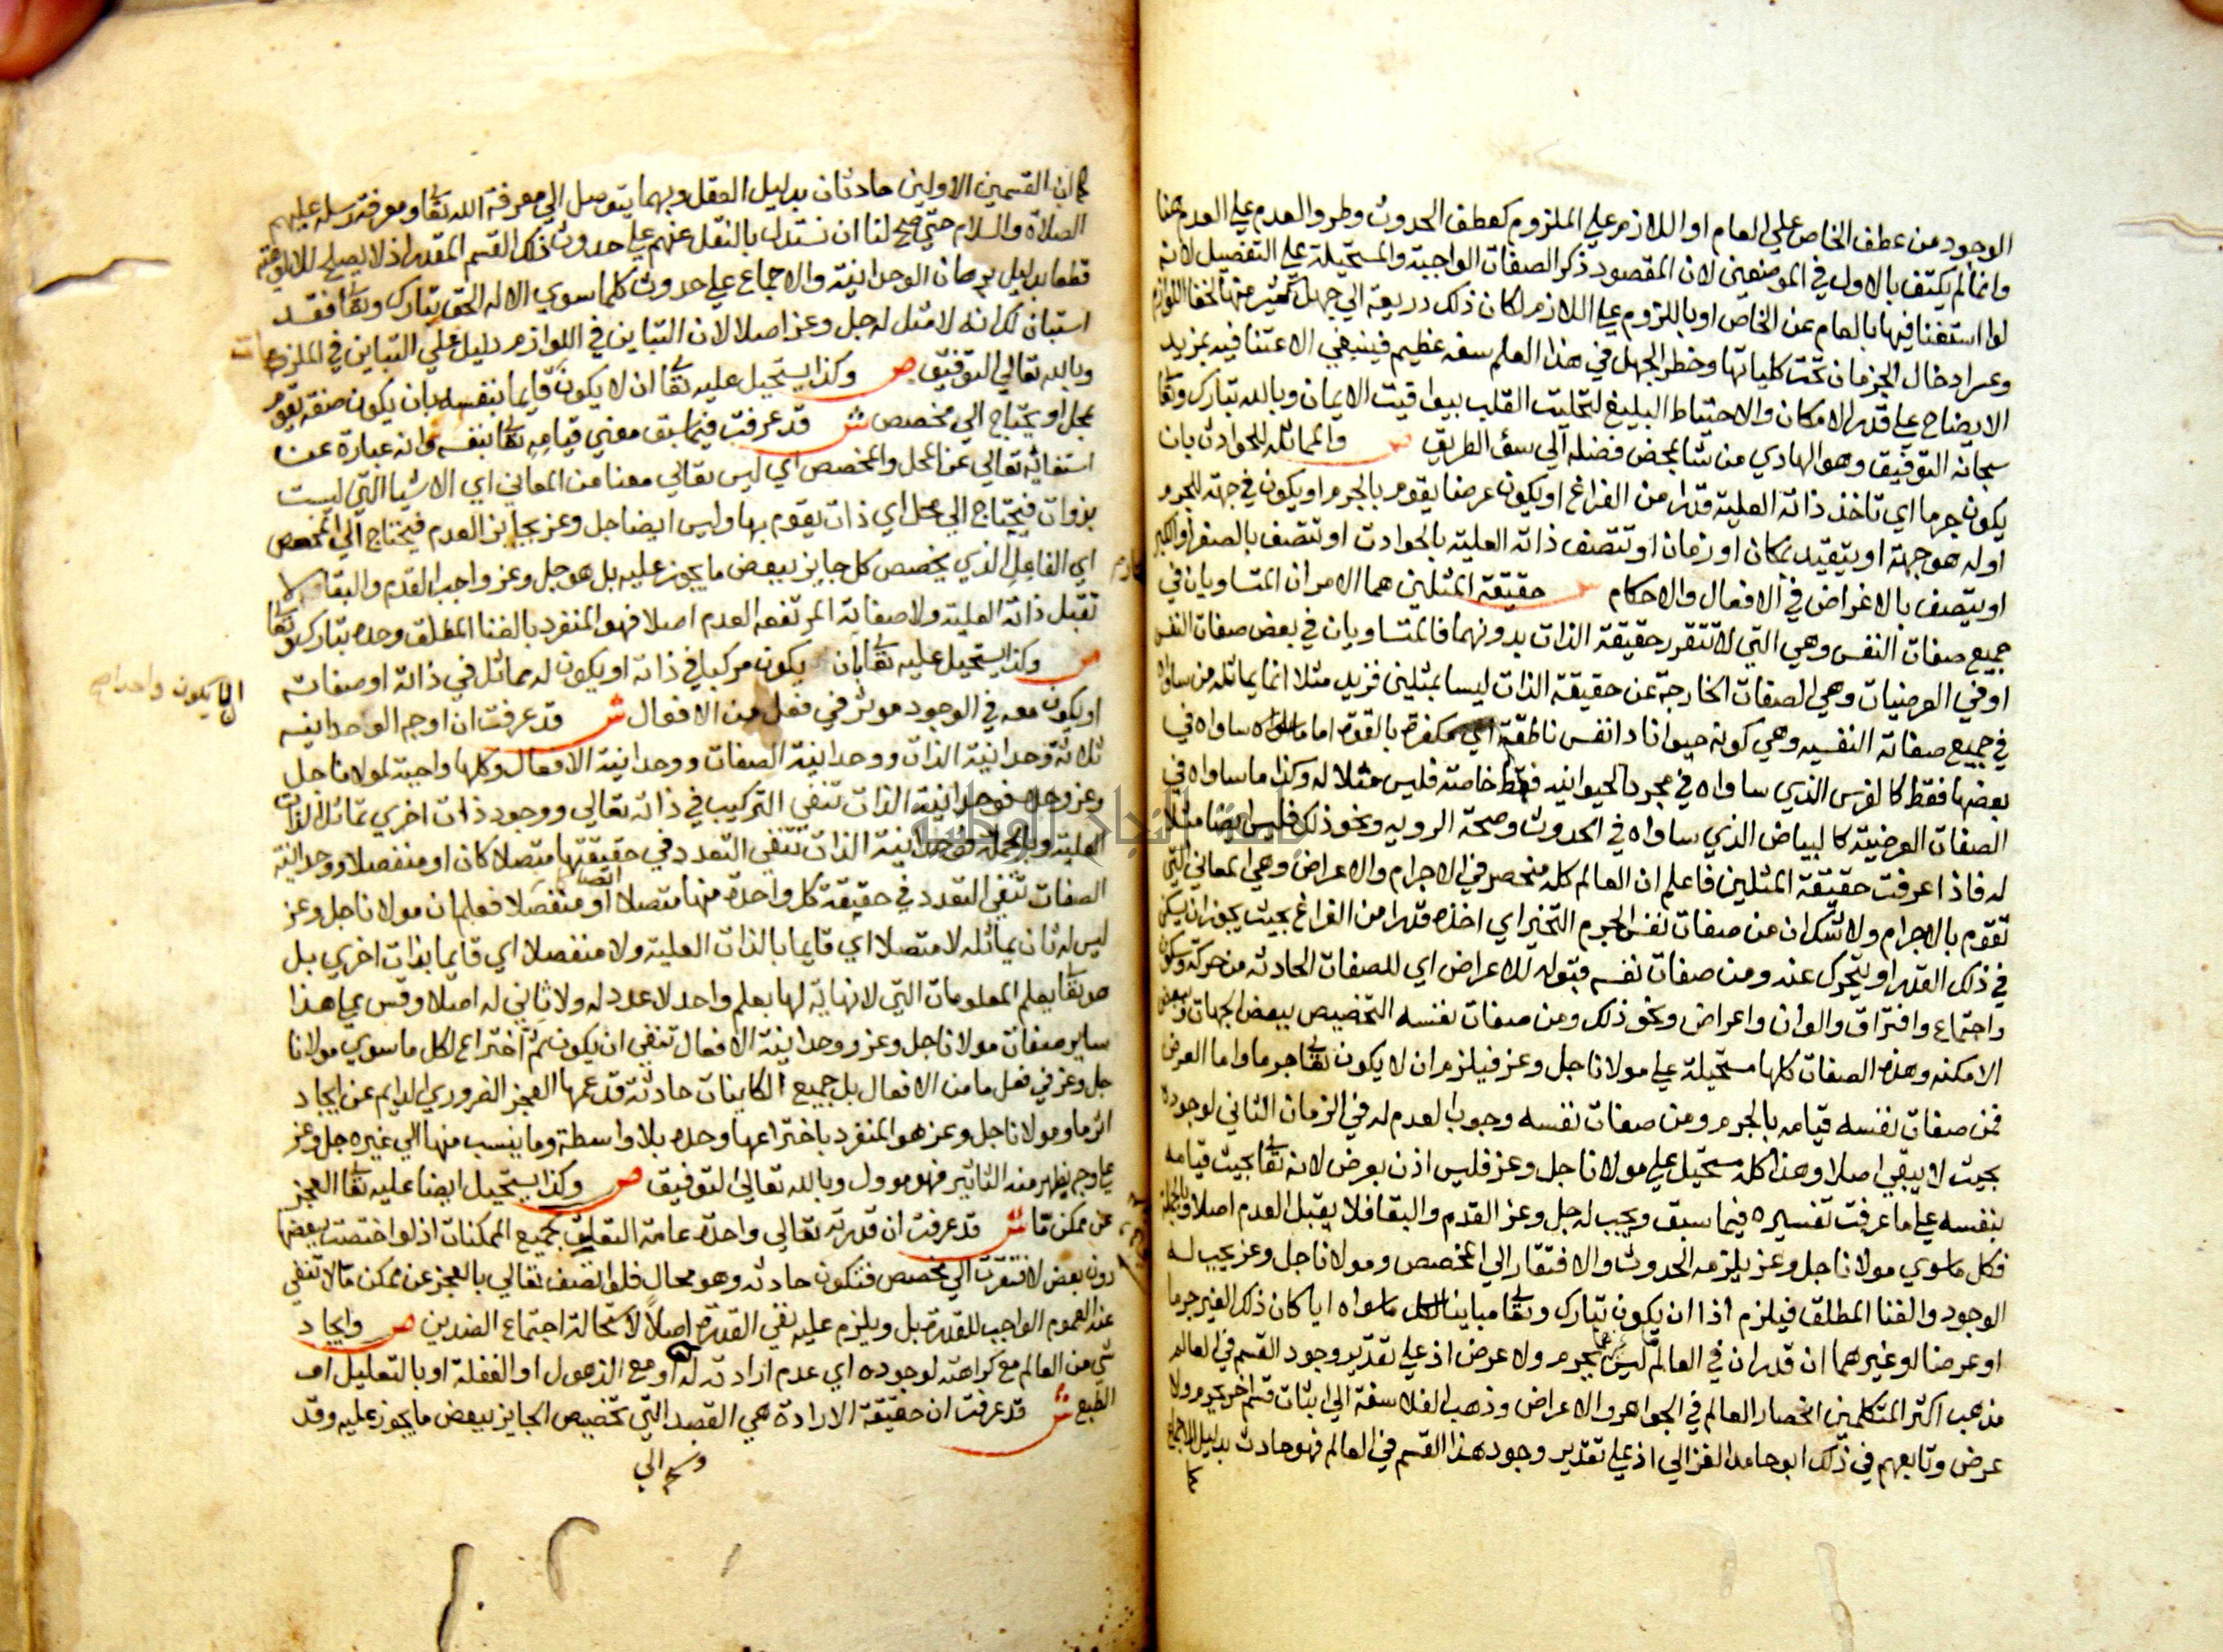 الوجود من عطف الخاص علي العام او اللازم علي الملزوم كعطف الحدوث وطرو العدم علي العدم هنا
وانما لم يكتف بالاول في الموضعين لان المقصود ذكر الصفات الواجبة والمستحيلة علي التفصيل لانه
لو استغنا فيها بالعام عن الخاص او بالملزوم علي اللازم لكان ذلك ذريعة الي جهل كثير منها لخفا اللوازم
وعسر ادخال الجزءيات تحت كلياتها وخطر الجهل في هذا العلم عظيم فينبغي الاعتنا فيه بمزيد
الايضاح علي قدر الامكان والاحتياط البليغ لتحليت القلب بيواقيت الايمان وبالله تبارك وتعا
سبحانه التوفيق وهو الهادي من شا بمحض فضله الي سوء الطريق ص والمماثله للحوادث بان
يكون جرما اي تاخذ ذاته العلية قدرا من الفراغ او يكون عرضا يقوم بالجرم او يكون في جهة للجرم
او له هو جهة او يتقيد بمكان او زمان او تتصف ذاته العلية بالحوادث او تتصف بالصغر او الكبر
او يتصف بالاغراض في الافعال والاحكام ش حقيقة المثلين هما الامران المتساويان في
جميع صفات النفس وهي التي لا تتقرر حقيقة الذات بدونهما فالمتساويان في بعض صفات النفس
او في العرضيات وهي الصفات الخارجة عن حقيقة الذات ليسا بمثلين فزيد مثلا انما يماثله من ساواه
في جميع صفاته النفسيه وهي كونه حيوانا ذا نفس ناطقة اي مفكرة بالقوة اما ما ساواه في
بعضها فقط كالفرس الذي ساواه في مجرد الحيوانيه فقط خاصة فليس مثلا له وكذا ما ساواه في
الصفات العرضية كالبياض الذي ساواه في الحدوث وصحة الرويه ونحو ذلك فليس ايضا مثلا
له فاذا عرفت حقيقة المثلين فاعلم ان العالم كله منحصر في الاجرام والاعراض وهي المعاني التي
تقوم بالاجرام ولا شك ان من صفات نفس الجرم التحيز اي اخذه قدرا من الفراغ بحيث يجوز ان يسكن
في ذلك القدر او يتحرك عنه ومن صفات نفسه قبوله للاعراض اي للصفات الحادثه من حركة وسكون
واجتماع وافتراق والوان واعراض ونحو ذلك ومن صفات نفسه التخصيص ببعض الجهات وبعض
الامكنه وهذه الصفات كلها مستحيلة علي مولانا جل وعز فيلزم ان لا يكون تعا جرما واما العرض
فمن صفات نفسه قيامه بالجرم ومن صفات نفسه وجوب العدم له في الزمان الثاني لوجوده
بحيث لا يبقي اصلا وهذا كله مستحيل علي مولانا جل وعز فليس اذن بعرض لانه تعا يجب قيامه
بنفسه علي ما عرفت تفسيره فيما سبق ويجب له جل وعز القدم والبقا فلا يقبل العدم اصلا وبالجملة
فكل ما سوي مولانا جل وعز يلزمه الحدوث والافتقار الي المخصص ومولانا جل وعز يجب له
الوجود والغنا المطلق فيلزم اذا ان يكون تبارك وتعا مباينا لكل ما سواه ايا كان ذلك الغير جرما
او عرضا او غيرهما ان قدر ان في العالم ما ليس بجرم ولا عرض اذ علي تقدير وجود القسم في العالم
مذهب اكثر المتكلمين انحصار العالم في الجواهر والاعراض وذهب الفلاسفة الي اثبات قسم اخر ليس بجرم ولا
عرض وتابعهم في ذلك ابو حامد الغزالي اذ علي تقدير وجود هذا القسم في العالم فهو حادث بدليل الاجماع
كما
كما ان القسمين الاولين حادثان بدليل العقل وبهما يتوصل الي معرفة الله تعا ومعرفة رسله عليهم
الصلاة والسلام حتي صح لنا ان نستدل بالنقل عنهم علي حدوث ذلك القسم المقدر اذ لا يصلح للالوهية
قطعا بدليل برهان الوحدانية والاجماع علي حدوث كلما سوي الاله الحق تبارك وتعا فقد
استبان لك انه لا مثل له جل وعز اصلا لان التباين في اللوازم دليل علي التباين في الملزومات
وبالله تعالي التوفيق ص وكذا يستحيل عليه تعا ان لا يكون قايما بنفسه بان يكون صفة يقوم
بمحل او يحتاج الي مخصص ش قد عرفت فيما سبق معني قيامه تعا بنفسه وانه عبارة عن
استغنائه تعالي عن المحل والمخصص اي ليس تعالي معنا من المعاني اي الاشيا التي ليست
بذوات فيحتاج الي محل اي ذات يقوم بها وليس ايضا جل وعز بجايز العدم فيحتاج الي المخصص
اي الفاعل الذي يخصص كل جايز ببعض ما يجوز عليه بل هو جل وعز واجب القدم والبقا لا
تقبل ذاته العلية ولا صفاته المرتفعه العدم اصلا فهو المنفرد بالغنا المطلق وحده تبارك وتعا
ص وكذا يستحيل عليه تعا بان يكون مركبا في ذاته او يكون له مماثل في ذاته او صفاته
ان لا يكون واحدا صح
او يكون معه في الوجود موثر في فعل من الافعال ش قد عرفت ان اوجه الوحدانيه
ثلاثة وحدانية الذات ووحدانية الصفات ووحدانية الافعال وكلها واجبة لمولانا جل
وعز وحده فوحدانية الذات تنفي التركيب في ذاته تعالي ووجود ذات اخري تماثل الذات
العلية وبالجملة فوحدانية الذات تنفي التعدد في حقيقتها متصلا كان او منفصلا ووحدانية
الصفات تنفي التعدد في حقيقة كل واحدة منها متصلا ايضا او منفصلا فعلم ان مولانا جل وعز
ليس له ثان يماثله لا متصلا اي قايما بالذات العلية ولا منفصلا اي قايما بذات اخري بل
هو تعا يعلم المعلومات التي لا نهاية لها بعلم واحد لا عدد له ولا ثاني له اصلا وقس علي هذا
ساير صفات مولانا جل وعز ووحدانية الافعال تنفي ان يكون ثم اختراع لكل ما سوي مولانا
جل وعز في فعل ما من الافعال بل جميع الكاينات حادثة قد عمها العجز الضروري الدايم عن ايجاد
اثر ما ومولانا جل وعز هو المنفرد باختراعها وحده بلا واسطة وما ينسب منها الي غيره جل وعز
علي وجه يظهر منه التاثير فهو موول وبالله تعالي التوفيق ص وكذا يستحيل ايضا عليه تعا العجز
عن ممكن ما ش قد عرفت ان قدرته تعالي واحدة عامة التعلق بجميع الممكنات اذ لو اختصت ببعضها
دون بعض لافتقرت الي مخصص فتكون حادثه وهو محال فلو اتصف تعالي بالعجز عن ممكن ما لانتفي
عند العموم الواجب للقدرة بل ويلزم عليه نفي القدرة اصلا لاستحالة اجتماع الضدين ص وايجاد
شي من العالم مع كراهته لوجوده اي عدم ارادته له او مع الذهول او الغفلة او بالتعليل او
الطبع ش قد عرفت ان حقيقة الارادة هي القصد الي تخصيص الجايز ببعض ما يجوز عليه وقد